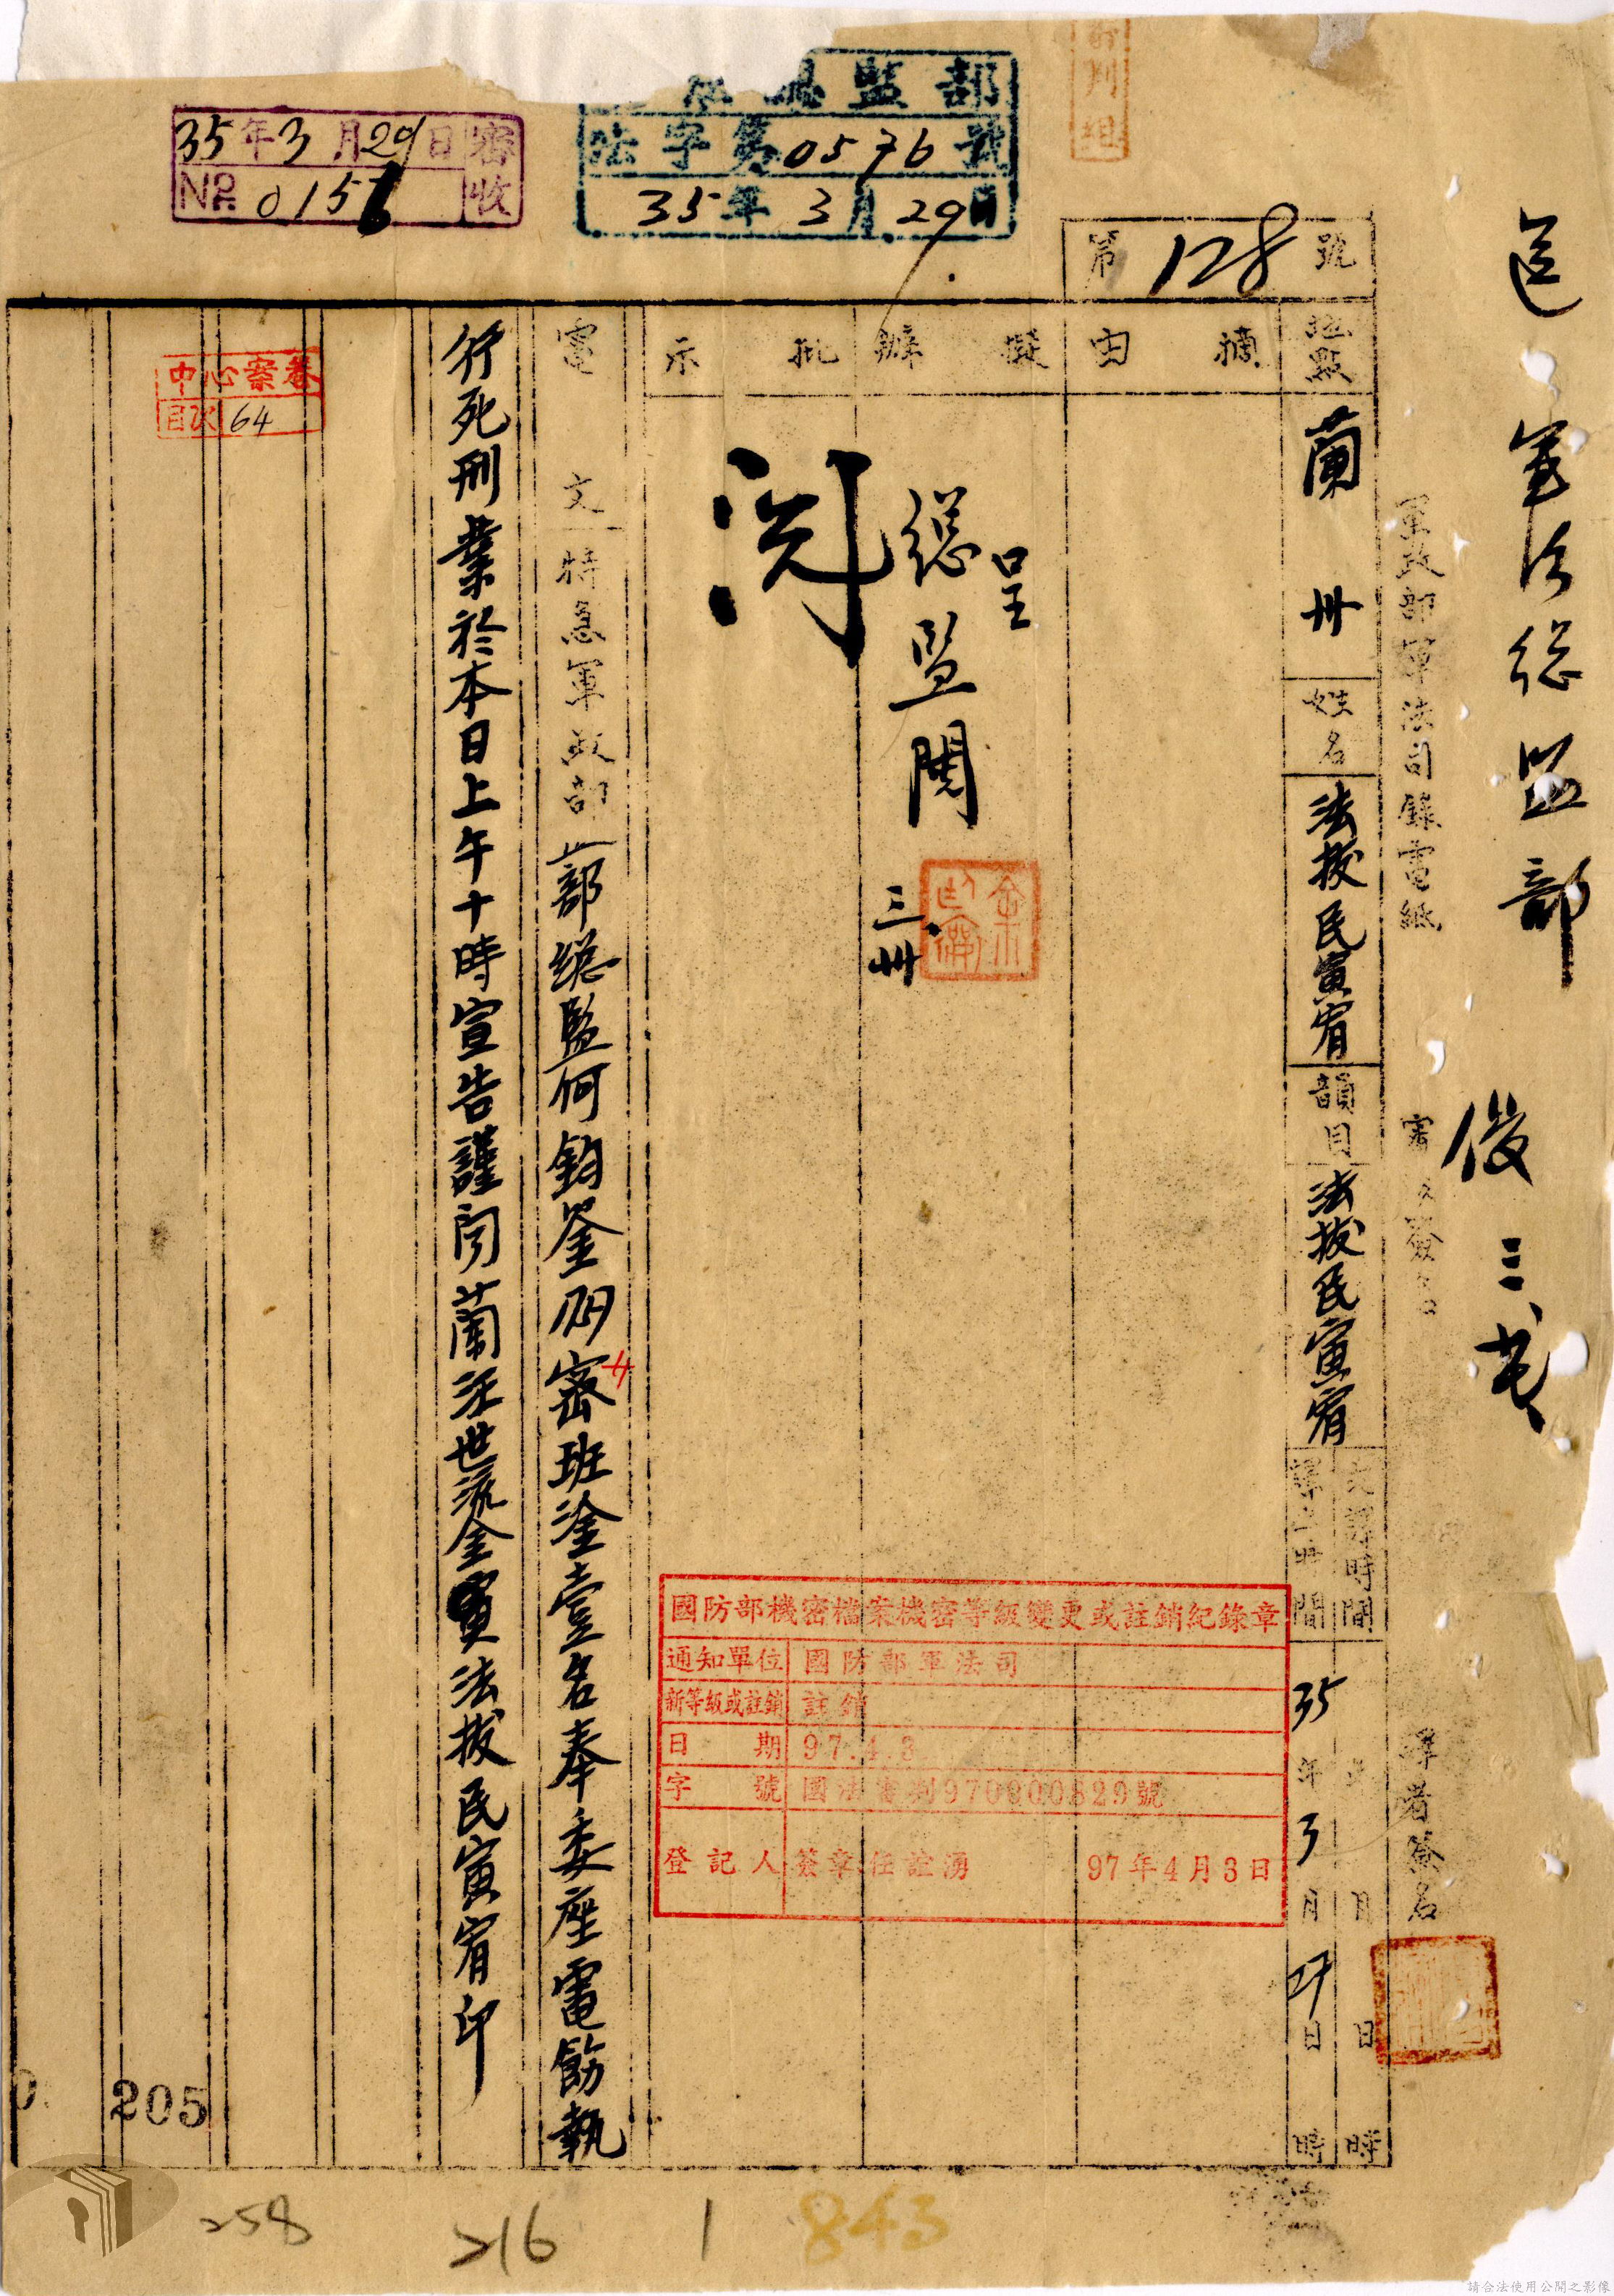 送 軍法總監部 俊 三、艽
軍政部軍法司錄電紙
譯者簽名
第128號
地點 蘭州 姓名 法拔民寅宥 韻目 法拔民寅宥
時間 35年3月29日 時
譯時間 年 月 日 時
摘由
擬辦
呈
總監閱
三、卅
批示
閱
電文 特急軍政部 部總監何鈞鉴 密班淦壹名奉委座電飭執
行死刑業於本日上午十時宣告謹聞蘭汪世流金寅法拔民寅宥印
監部
法字第0576號
35年3月29日
35年3月29日 審收
No. 0156
中心案卷
目次 64
國防部機密檔案機密等級變更或註銷紀錄章
通知單位 國防部軍法司
新等級或註銷 註銷
日期 97.4.3
字號 國法審判970900829號
登記人 簽章 任誼湧 97年4月3日
205
258
216
1
843
請合法使用公開之影像